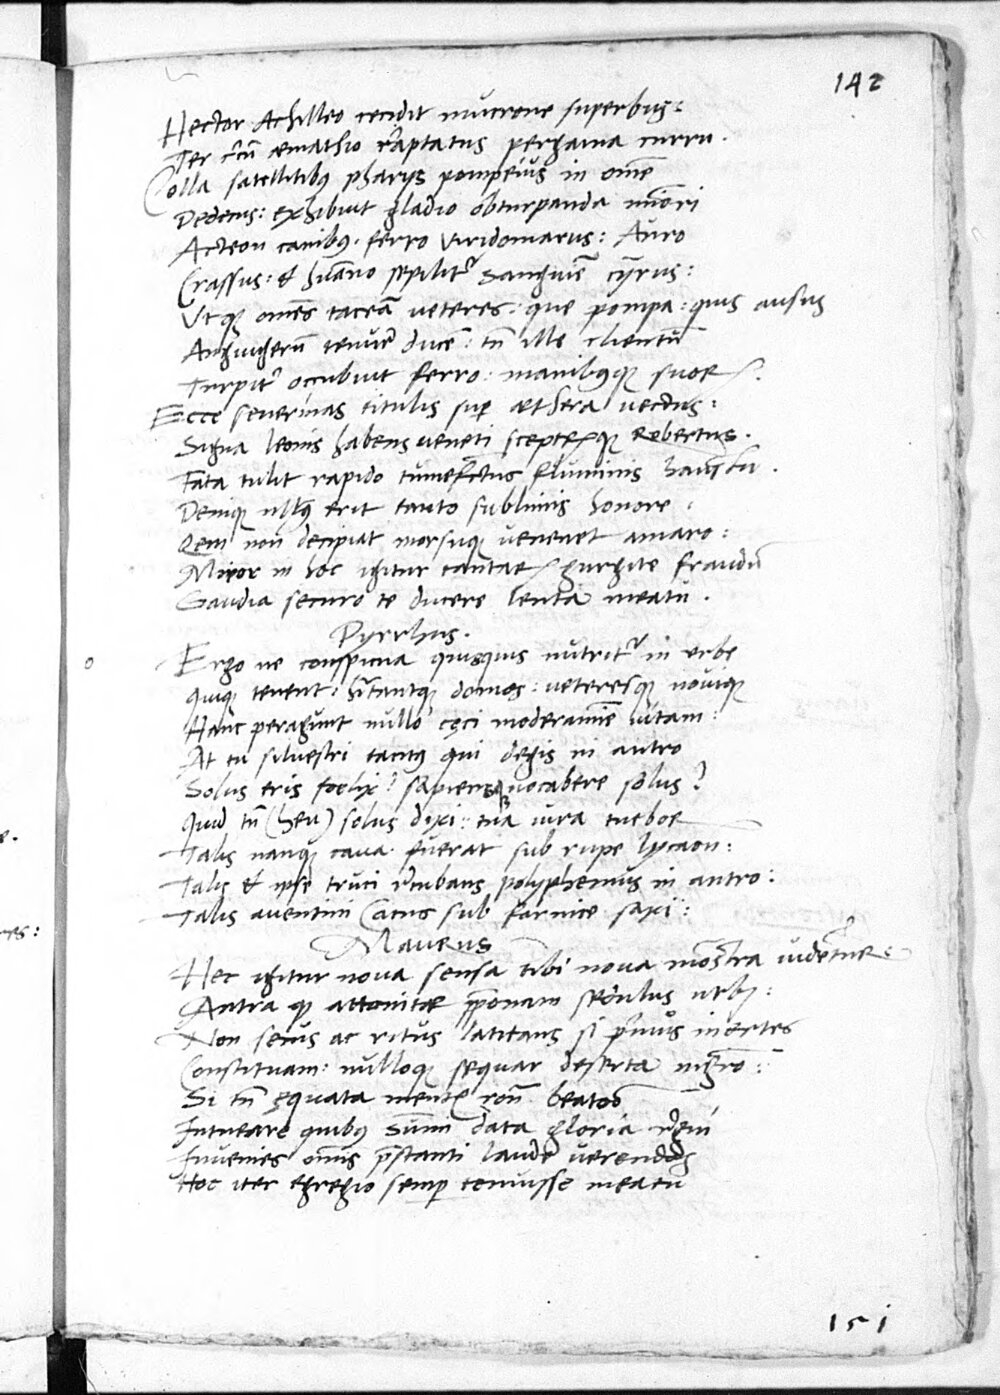 142
Hector Achilleo cecidit mucrone superbus:
Ter circũ æmathio raptatus pergama curru.
Colla satellitibꝰ pharijs pompeius in omẽ
Dedecus: exhibuit gladio obturpanda minori
Acteon canibꝰ. ferro viridomarus: Auro
Crassus: & huãno sepilitꝰ sanguiẽ cyrus:
Vt qꝫ omẽs taceã veteres: que pompa: quis ausus
Anguigerũ tenuit ducẽ: tñ ille clientũ
Turpitꝰ occubuit ferro: manibꝰqꝫ suoꝝ.
Ecce seuerinas titulis suꝑ æthera vectus:
Signa leonis habens veneti sceptꝝqꝫ Robertus.
Fata tulit rapido tumefctus fluminis haustu.
Deniqꝫ nullꝰ erit tanto sublimis honore:
Qem non decipiat morsuqꝫ venenet amaro:
Miror in hoc igitur cantaꝝ gurgite fraudũ
Gaudia securo te ducere lenta meatu.
Pyrrhus.
Ergo ne conspicua quisquis nutritꝰ in urbe
Quiqꝫ tenent: hĩtantqꝫ domos: veteresqꝫ nouiqꝫ
Hanc peragunt nullo cęci moderamiẽ vitam:
At tu siluestri tacitꝰ qui degis in antro
Solus eris foelix? sapiensqꝫ vocabere solus?
Quid tñ (heu) solus dixi: tua iura tueboꝝ
Talis nanqꝫ caua fuerat sub rupe lycaon:
Talis & ipse truci recubans polyphemus in antro:
Talis auentini Cacus sub fornice saxi:
Maurus
Hec igitur noua sensa tibi noua mõstra videntur:
Antra qꝫ attonitæ ꝓponam sedulus urbi:
Non secus ac ritus latitans si primus inertes
Constituam: nulloqꝫ sequar deserta migrõ:
Si tñ equata mentꝭ rõñ beatos
Intueare quibꝰ sũmi data gloria regni
Inuenies om̃is p̃stanti laude verendos
Hoc iter egregio semꝑ tenuisse meatu
151